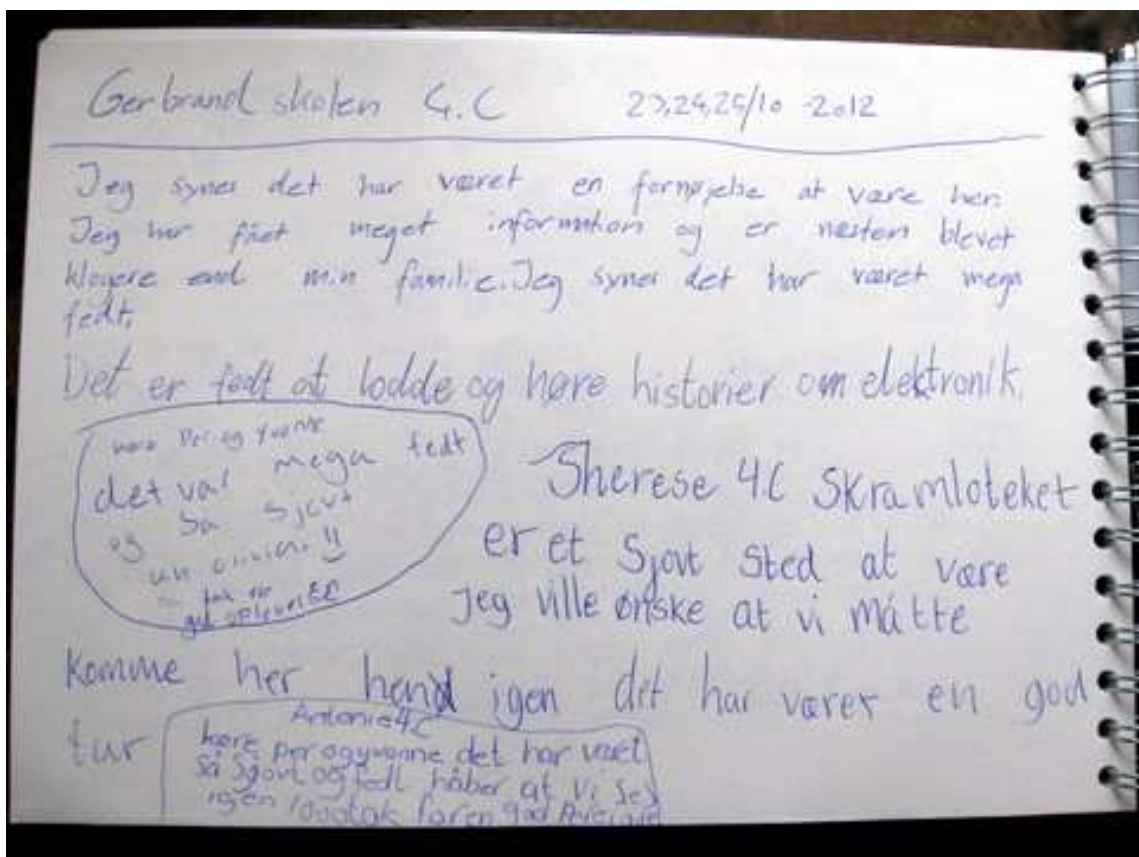 Gerbrand skolen 4.C 23,24,25/10 -2012
Jeg synes det har været en fornøjelse at være her.
Jeg har fået meget information og er næsten blevet
klogere end min familie. Jeg synes det har været mega
fedt.
Det er fedt at lodde og høre historier om elektronik.
Per og Yvonne
det var mega fedt
og så sjovt
tak for
god
Sherese 4.C Skramloteket
er et Sjovt Sted at være
Jeg ville ønske at vi måtte
komme her hend igen det har været en god
tur
Antonie 4C
kære per og yvonne det har været
så sjovt og fedt håber at vi ses
igen 1000tak for en god